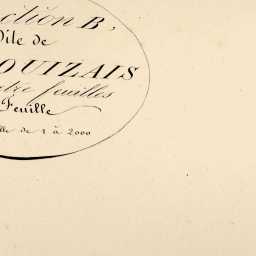 ction B,
Dite de
OUIZAIS
tre feuilles
Feuille
lle de 1 à 2000